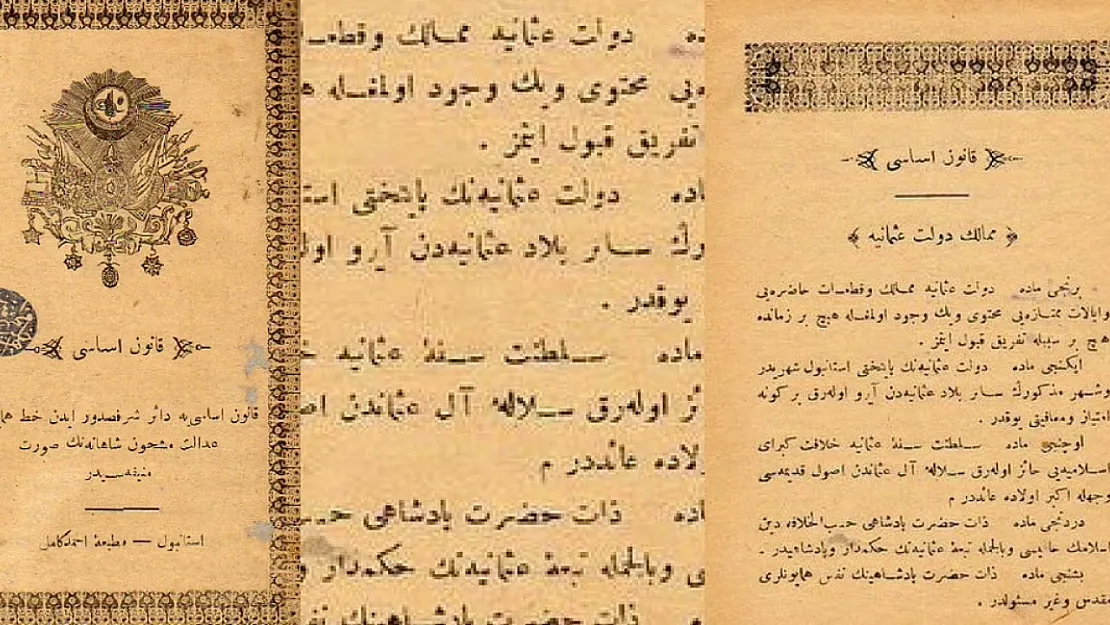 قانون اساسی
قانون اساسی‌یه دائر شرفصدور ایدن خط هما
عدالت مشحون شاهانه‌نك صورت
منیفه‌سیدر
استانبول — مطبعۀ احمد كامل
ده دولت عثمانیه ممالك وقطعـ
ه‌یی محتوی ویك وجود اولمغـله هـ
تفریق قبول ایتمز .
ماده دولت عثمانیه‌نك پایتختی استا
ورك سـائر بلاد عثمانیه‌دن آیرو اولـ
یوقدر .
ماده سـلطنت سـنیۀ عثمانیه خـ
ئز اوله‌رق سـلالۀ آل عثماندن اصـ
ولاده عائددر م
ماده ذات حضرت پادشاهی حسب
ی وبالجمله تبعۀ عثمانیه‌نك حكمدار و
ذات حضرت پادشـاهینك نفـ
قانون اساسی
ممالك دولت عثمانیه
برنجی ماده دولت عثمانیه ممـالك وقطعـات حاضره‌یی
وایالات ممتـازه‌یی محتوی ویك وجود اولمغـله هیچ بر زمانده
هیچ بر سببله تفریق قبول ایتمز .
ایكنجی ماده دولت عثمانیه‌نك پایتختی استانبول شهریدر
وشـهر مذكورك سـائر بلاد عثمانیه‌دن آیرو اوله‌رق بر كونه
امتیاز ومعافیتی یوقدر .
اوچنجی ماده سـلطنت سـنیۀ عثمانیه خلافت كبرای
اسـلامیه‌یی حائز اوله‌رق سـلالۀ آل عثماندن اصول قدیمه‌سی
وجهله اكبر اولاده عائددر م
دردنجی ماده ذات حضرت پادشاهی حسب الخلافه دین
اسلامك حامیسی وبالجمله تبعۀ عثمانیه‌نك حكمدار وپادشاهیدر .
بشنجی ماده ذات حضرت پادشـاهینك نفس همایونلری
مقدس وغیر مسئولدر .